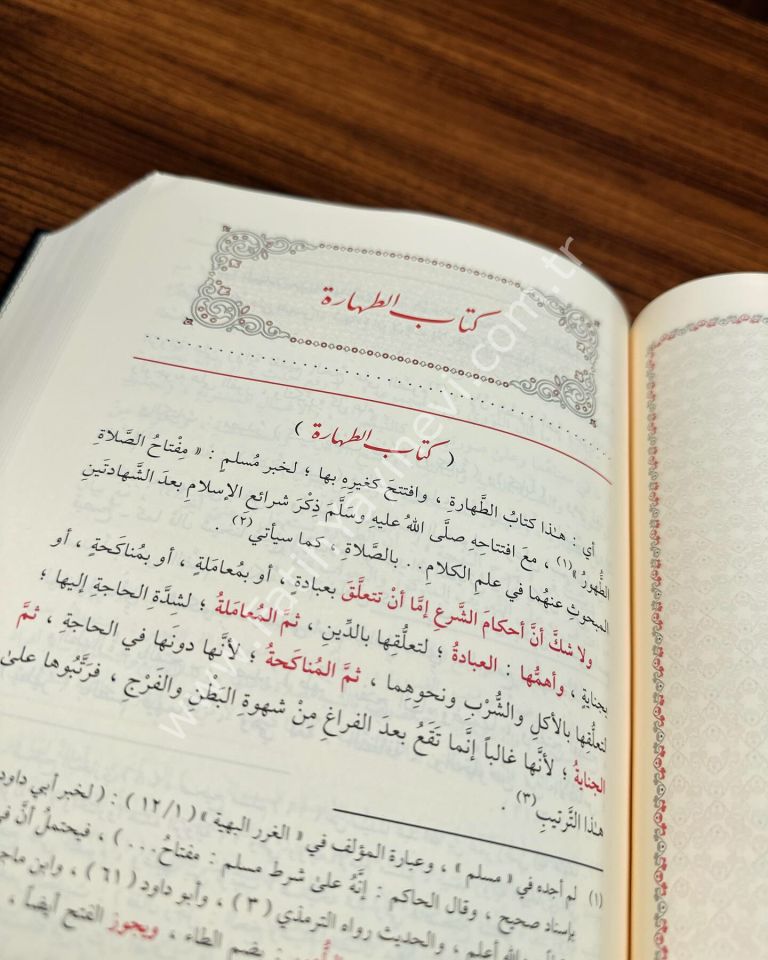 كتاب الطهارة
( كتاب الطهارة )
أي : هـٰذا كتابُ الطَّهارةِ ، وافتتحَ كغيرِهِ بها ؛ لخبر مُسلم : « مِفْتاحُ الصَّلاةِ
الطُّهورُ »(١) ، معَ افتتاحِهِ صلَّى اللهُ عليهِ وسَلَّمَ ذِكْرَ شرائعِ الإسلامِ بعدَ الشَّهادتَينِ
المبحوثِ عنهُما في علمِ الكلامِ.. بالصَّلاةِ ، كما سيأتي(٢) .
ولا شكَّ أنَّ أحكامَ الشَّرعِ إمَّا أنْ تتعلَّقَ بعبادةٍ ، أو بمُعاملَةٍ ، أو بمُناكَحةٍ ، أو
بجِنايةٍ ، وأهمُّها : العبادةُ ؛ لتعلُّقِها بالدِّينِ ، ثمَّ المُعامَلةُ ؛ لشدَّةِ الحاجةِ إليها ؛
لتعلُّقِها بالأكلِ والشُّرْبِ ونحوِهِما ، ثمَّ المُناكَحةُ ؛ لأنَّها دونَها في الحاجةِ ، ثمَّ
الجنايةُ ؛ لأنَّها غالباً إنَّما تَقَعُ بعدَ الفراغِ مِنْ شهوةِ البَطْنِ والفَرْجِ ، فرَتَّبُوها علىٰ
هـٰذا التَّرتيبِ(٣) .
(١) لم أجده في « مسلم » ، وعبارة المؤلف في « الغرر البهية » ( ١٢/١ ) : ( لخبر أبي داود
بإسناد صحيح ، وقال الحاكم : إنَّهُ علىٰ شرط مسلم : مفتاحُ... ) ، فيحتملُ أنَّ
والله أعلم ، والحديث رواه الترمذي ( ٣ ) ، وأبو داود ( ٦١ ) ، وابن
: بضم الطاء ، ويجوز الفتح أيضاً ،
www.fatihyayinevi.com.tr